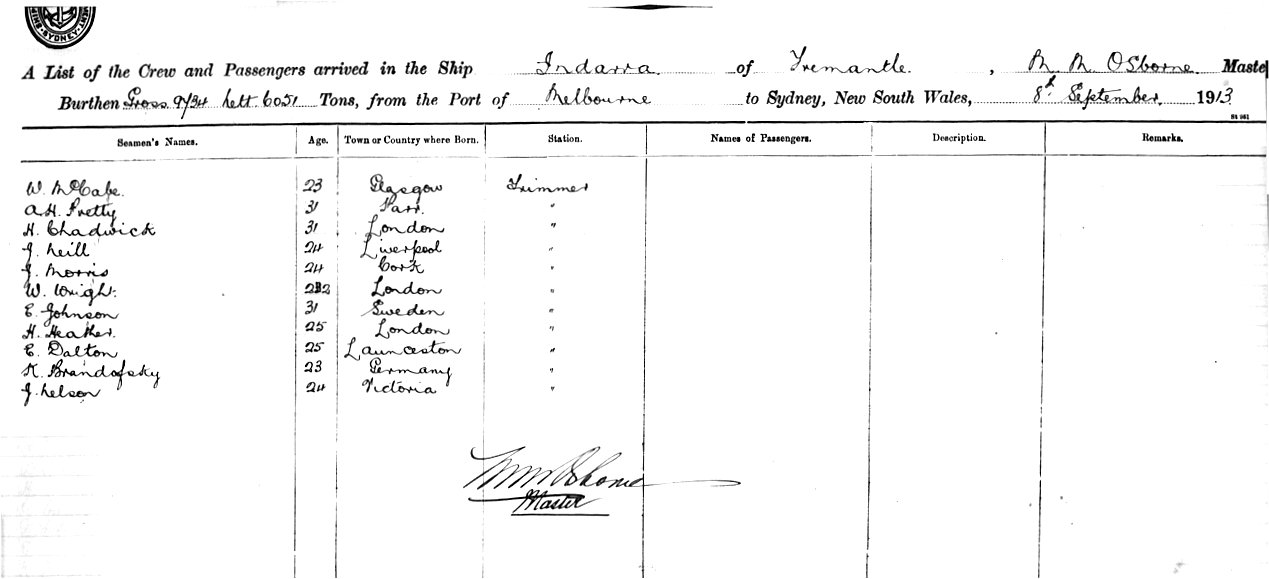 SYDNEY
A List of the Crew and Passengers arrived in the Ship Indarra of Fremantle, M. M. Osborne Maste
Burthen Gross 9734 Nett 6051 Tons, from the Port of Melbourne to Sydney, New South Wales, 8th September 1913
St 961
Seamen's Names. Age. Town or Country where Born. Station. Names of Passengers. Description. Remarks.
W. McCabe. 23 Glasgow Trimmer
A. H. Pretty 31 Parr. "
H. Chadwick 31 London "
J. Neill 24 Liverpool "
J. Morris 24 Cork "
W. Wright. London "
E. Johnson 31 Sweden "
H. Heather. 25 London "
E. Dalton 25 Launceston "
K. Brandofsky 23 Germany "
J. Nelson 24 Victoria "
M M Osborne
Master